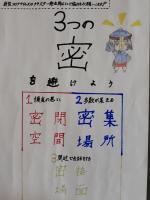 3つの
密
を避けよう
1 換気の悪い
密閉
空間
2 多数が集まる
密集
場所
3 間近で会話する
密接
場面